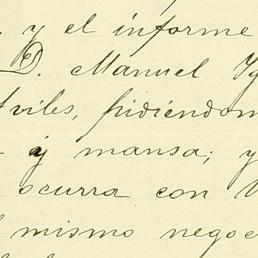 y el informe
D. Manuel Yg
tviles, pidiéndom
y mansa; y
ocurra con
mismo negoc